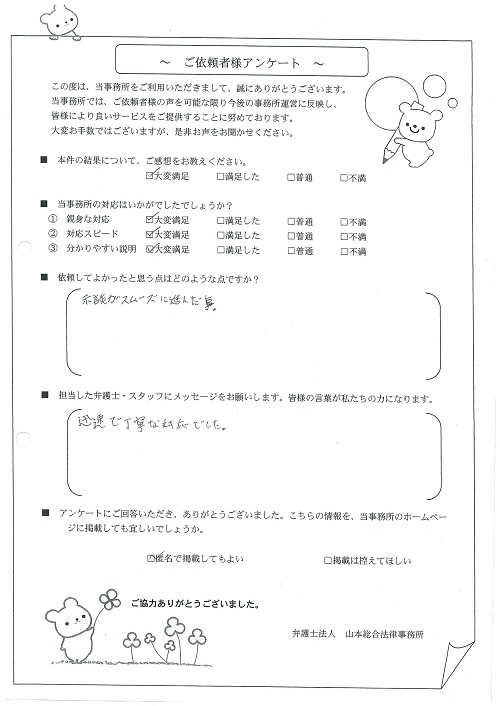 ～ ご依頼者様アンケート ～
この度は、当事務所をご利用いただきまして、誠にありがとうございます。
当事務所では、ご依頼者様の声を可能な限り今後の事務所運営に反映し、
皆様により良いサービスをご提供することに努めております。
大変お手数ではございますが、是非お声をお聞かせください。
■ 本件の結果について、ご感想をお教えください。
☑大変満足 □満足した □普通 □不満
■ 当事務所の対応はいかがでしたでしょうか？
① 親身な対応 ☑大変満足 □満足した □普通 □不満
② 対応スピード ☑大変満足 □満足した □普通 □不満
③ 分かりやすい説明 ☑大変満足 □満足した □普通 □不満
■ 依頼してよかったと思う点はどのような点ですか？
示談がスムーズに進んだ点。
■ 担当した弁護士・スタッフにメッセージをお願いします。皆様の言葉が私たちの力になります。
迅速で丁寧な対応でした。
■ アンケートにご回答いただき、ありがとうございました。こちらの情報を、当事務所のホームペー
ジに掲載しても宜しいでしょうか。
☑匿名で掲載してもよい □掲載は控えてほしい
ご協力ありがとうございました。
弁護士法人 山本総合法律事務所